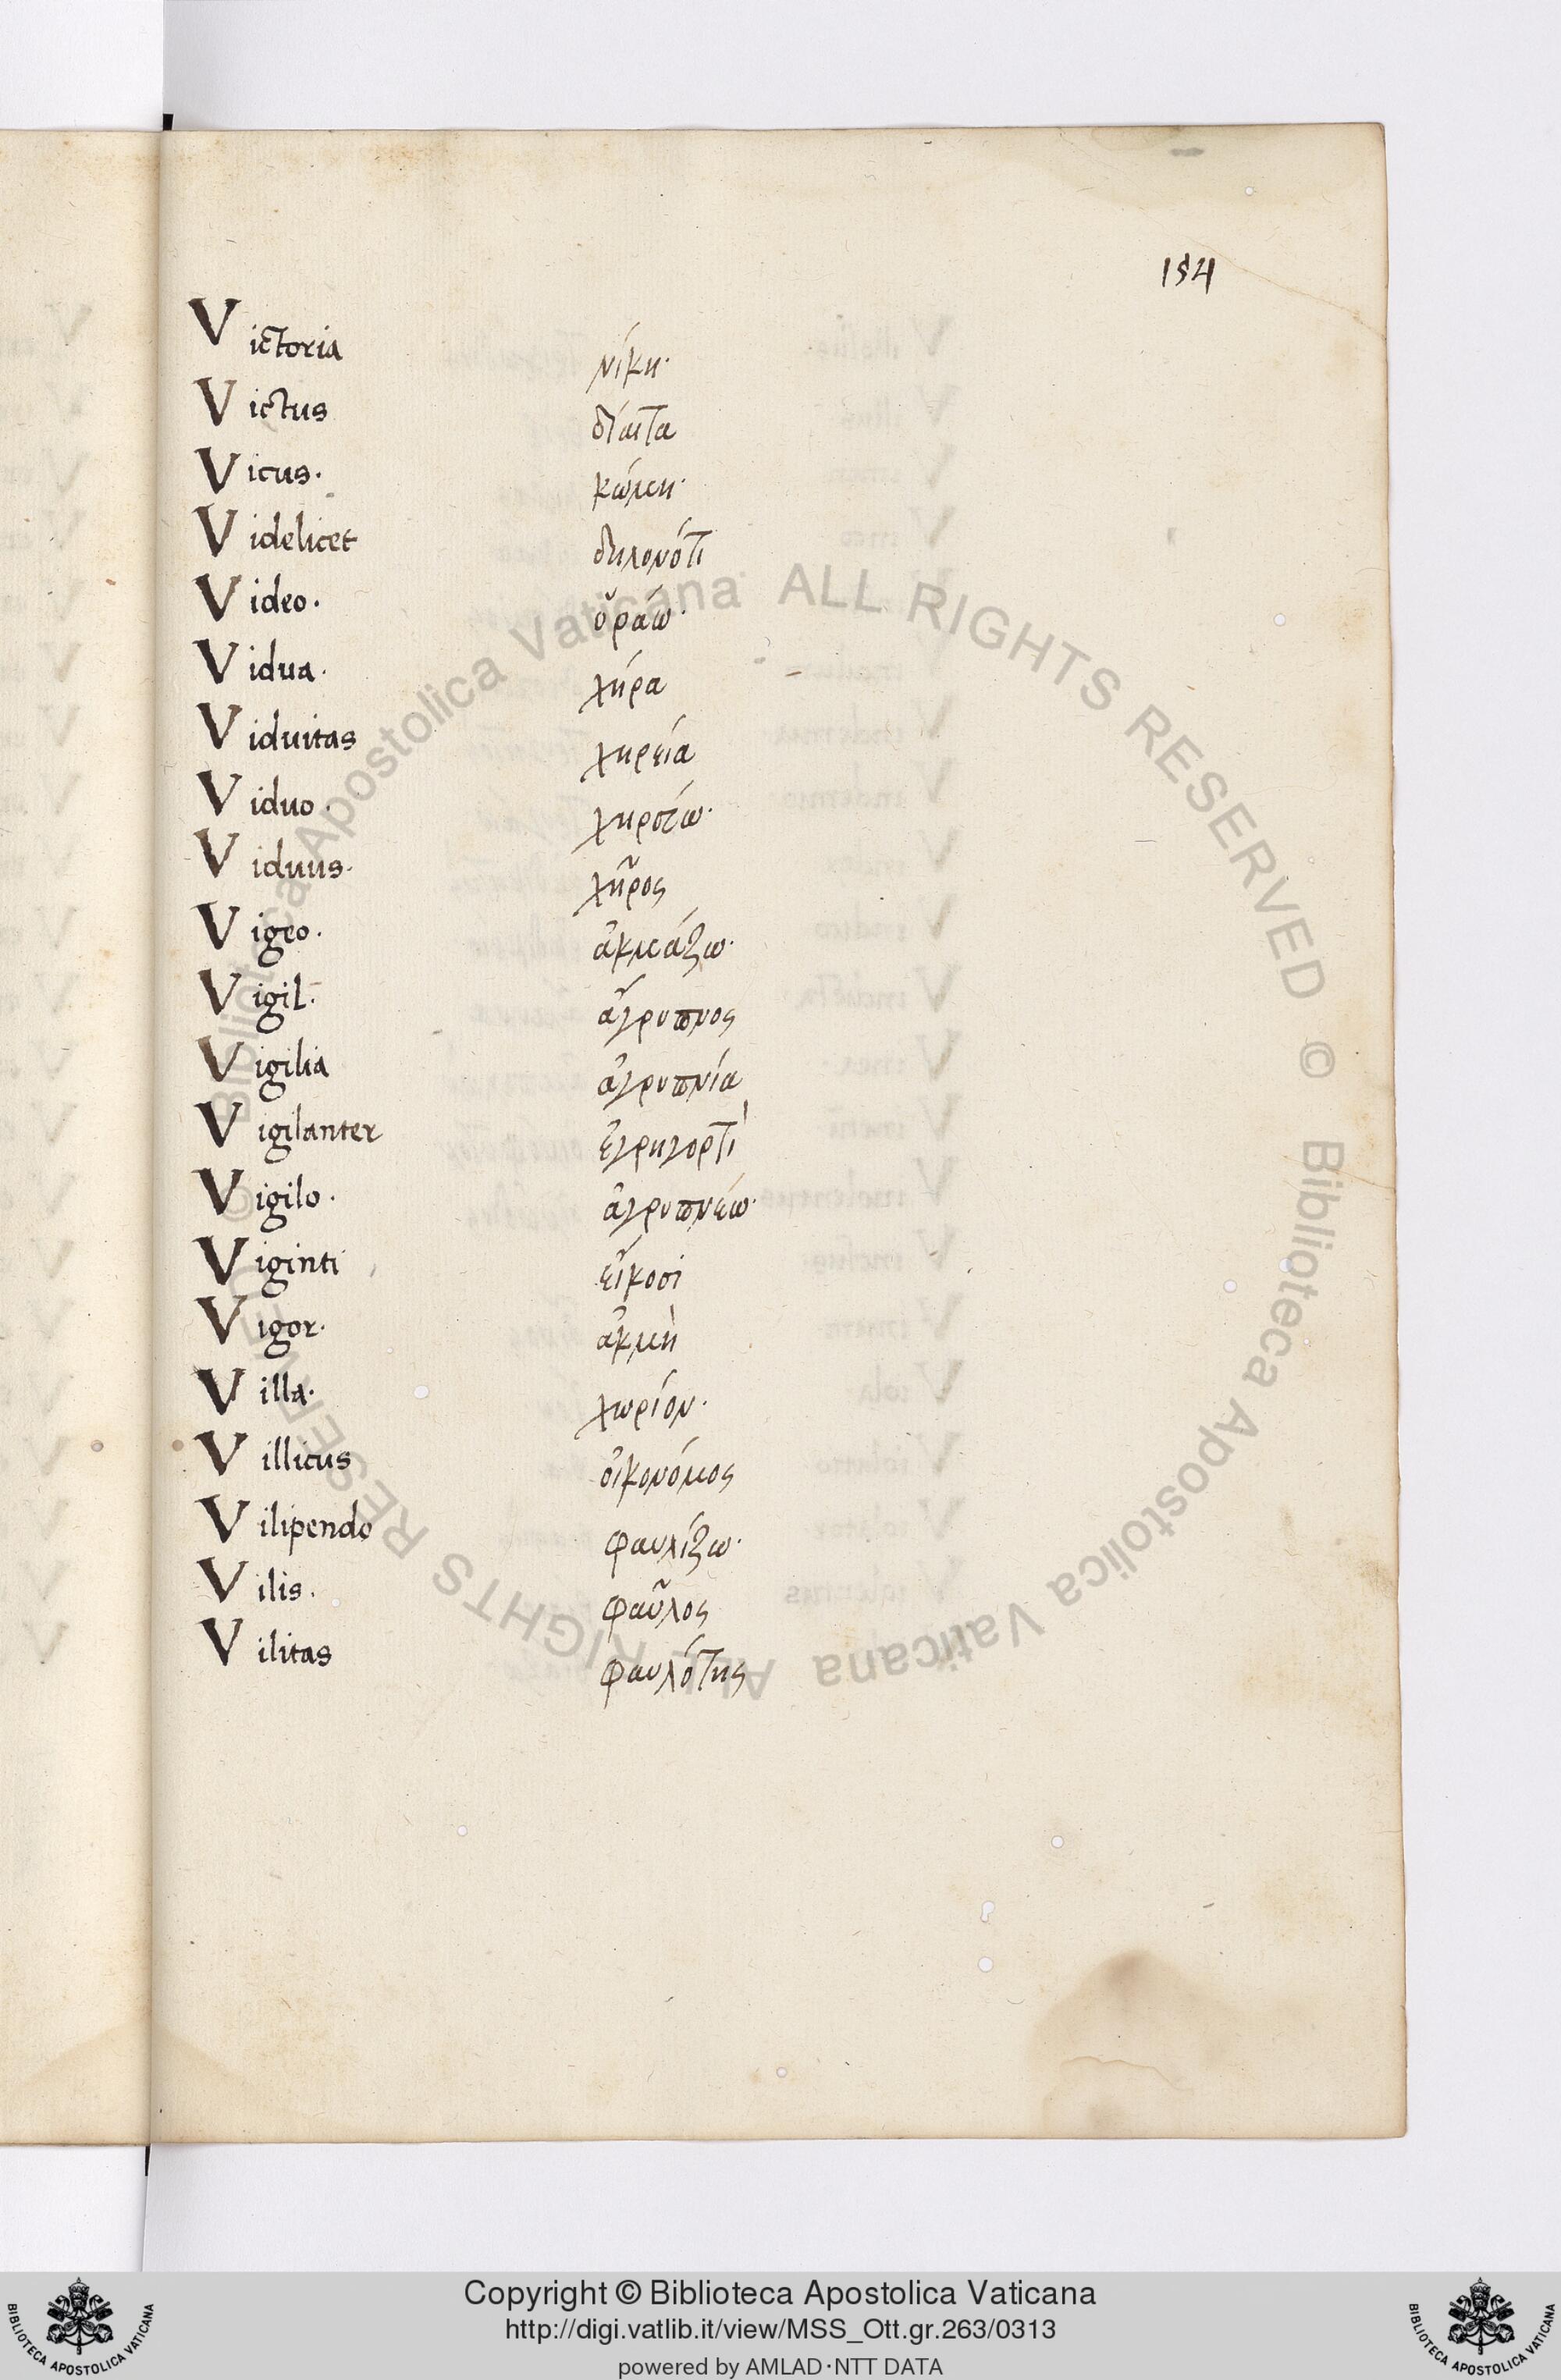 154
Victoria νίκη·
Victus δίαιτα
Vicus· κώμη·
Videlicet δηλονότι
Video· ὁράω·
Vidua· χήρα
Viduitas χηρεία
Viduo·
Viduus· χῆρος
Vigeo· ἀκμάζω·
Vigil· ἄγρυπνος
Vigilia ἀγρυπνία
Vigilanter ἐγρηγορτὶ
Vigilo· ἀγρυπνέω·
Viginti εἴκοσι
Vigor· ἀκμὴ
Villa· χωρίον·
Villicus οἰκονόμος
Vilipendo φαυλίζω·
Vilis· φαῦλος
Vilitas φαυλότης
Biblioteca Apostolica Vaticana ALL RIGHTS RESERVED © Biblioteca Apostolica Vaticana ALL RIGHTS RESERVED ©
Copyright © Biblioteca Apostolica Vaticana
http://digi.vatlib.it/view/MSS_Ott.gr.263/0313
powered by AMLAD·NTT DATA
BIBLIOTECA APOSTOLICA VATICANA
BIBLIOTECA APOSTOLICA VATICANA